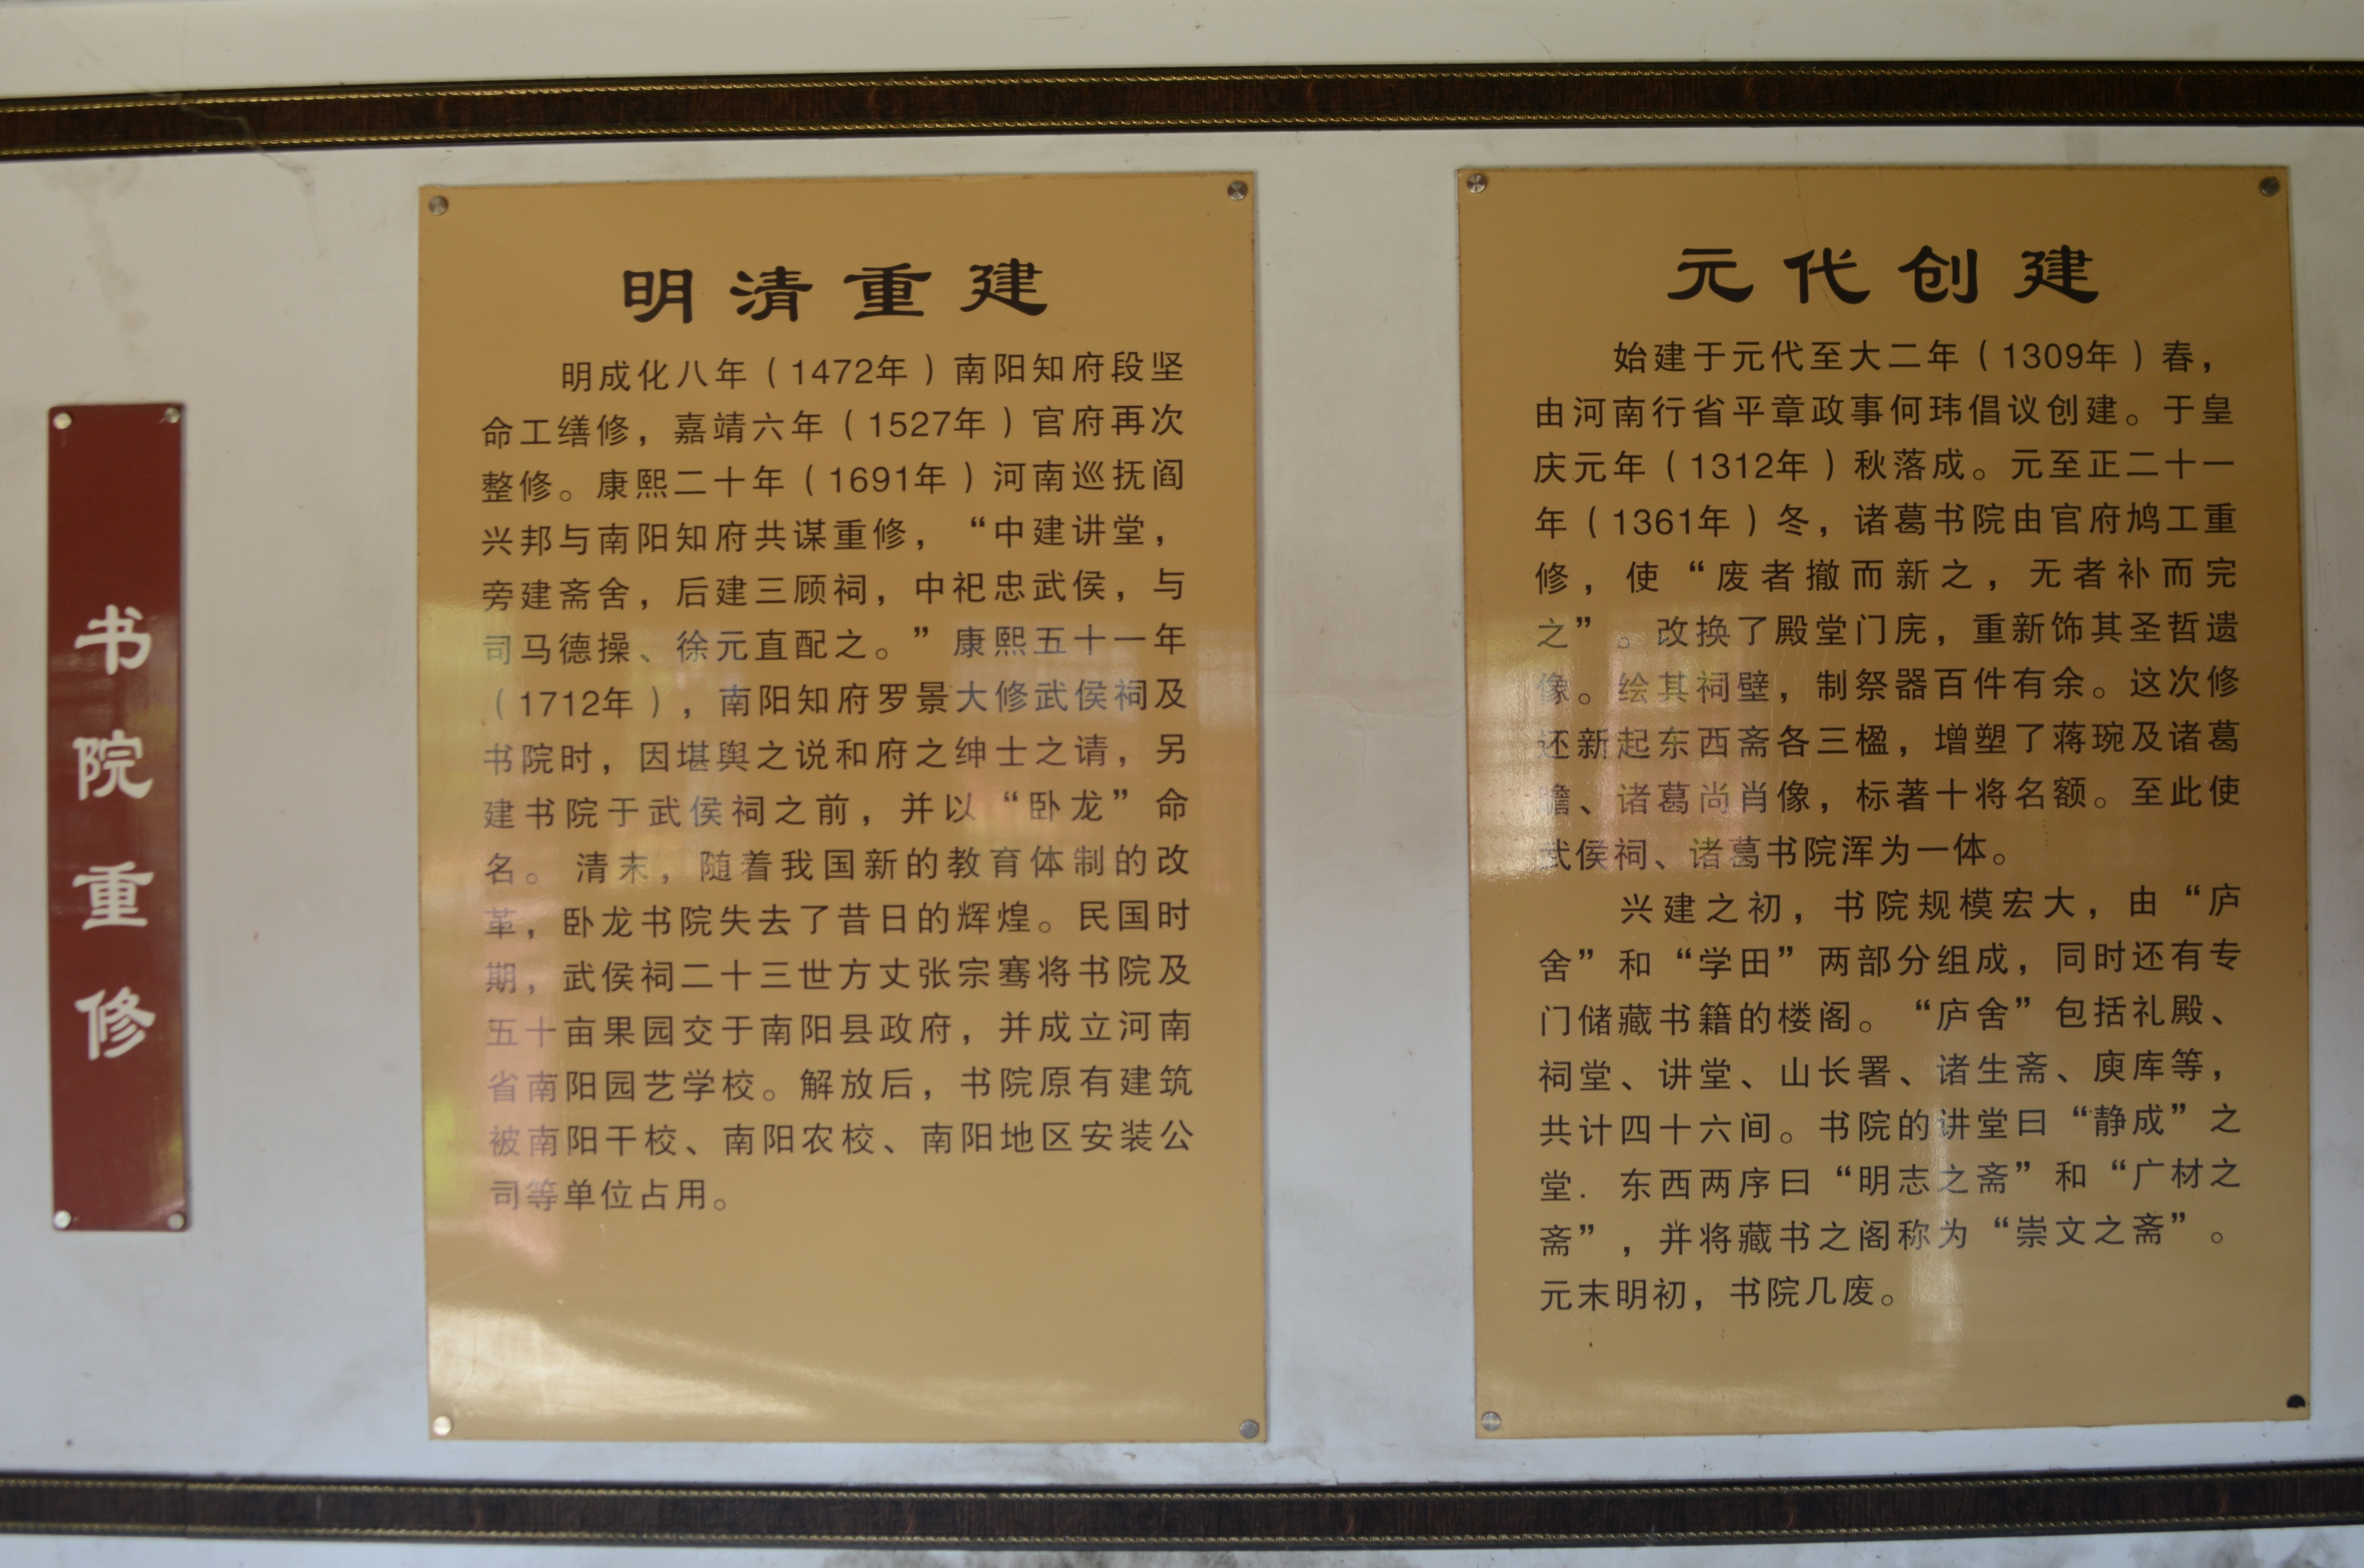 书院重修
明清重建
明成化八年（1472年）南阳知府段坚
命工缮修，嘉靖六年（1527年）官府再次
整修。康熙二十年（1691年）河南巡抚阎
兴邦与南阳知府共谋重修，“中建讲堂，
旁建斋舍，后建三顾祠，中祀忠武侯，与
司马德操、徐元直配之。”康熙五十一年
（1712年），南阳知府罗景大修武侯祠及
书院时，因堪舆之说和府之绅士之请，另
建书院于武侯祠之前，并以“卧龙”命
名。清末，随着我国新的教育体制的改
革，卧龙书院失去了昔日的辉煌。民国时
期，武侯祠二十三世方丈张宗骞将书院及
五十亩果园交于南阳县政府，并成立河南
省南阳园艺学校。解放后，书院原有建筑
被南阳干校、南阳农校、南阳地区安装公
司等单位占用。
元代创建
始建于元代至大二年（1309年）春，
由河南行省平章政事何玮倡议创建。于皇
庆元年（1312年）秋落成。元至正二十一
年（1361年）冬，诸葛书院由官府鸠工重
修，使“废者撤而新之，无者补而完
之”。改换了殿堂门庑，重新饰其圣哲遗
像。绘其祠壁，制祭器百件有余。这次修
还新起东西斋各三楹，增塑了蒋琬及诸葛
瞻、诸葛尚肖像，标著十将名额。至此使
武侯祠、诸葛书院浑为一体。
兴建之初，书院规模宏大，由“庐
舍”和“学田”两部分组成，同时还有专
门储藏书籍的楼阁。“庐舍”包括礼殿、
祠堂、讲堂、山长署、诸生斋、庾库等，
共计四十六间。书院的讲堂曰“静成”之
堂．东西两序曰“明志之斋”和“广材之
斋”，并将藏书之阁称为“崇文之斋”。
元末明初，书院几废。